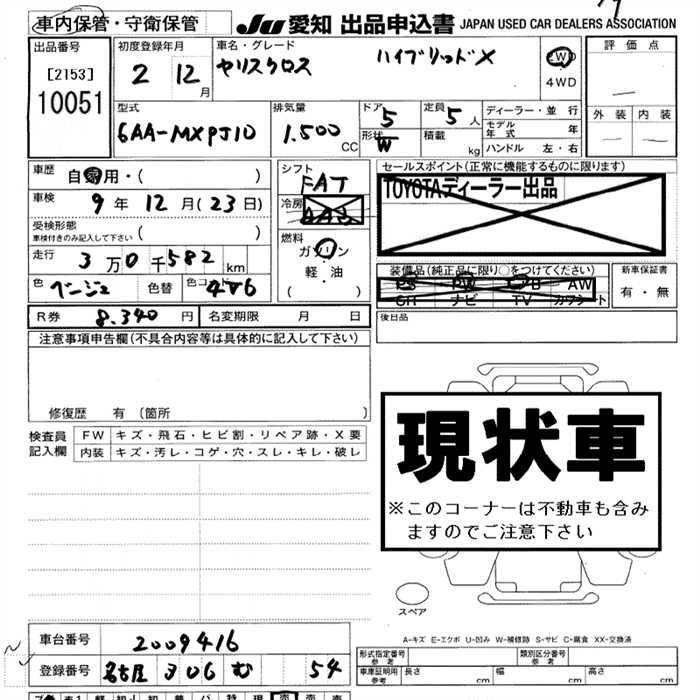 車内保管・守衛保管
JU 愛知 出品申込書 JAPAN USED CAR DEALERS ASSOCIATION
出品番号
[2153]
10051
初度登録年月
2 12月
車名・グレード
ヤリスクロス ハイブリッドX
2WD
4WD
評価点
外装 内装
型式
6AA-MXPJ10
排気量
1.500 CC
ドア 5
形状 W
定員 5人
積載 kg
ディーラー・並行
モデル年式 年
ハンドル 左・右
車歴 自家用・( )
車検 9年12月(23日)
受検形態
車検付きのみ記入して下さい ( )
走行 3万0千582 km
色 ベージュ 色替 色コード 4V6
シフト
FAT
冷房
AAC
燃料
ガソリン
軽・油
( )
セールスポイント(正常に機能するものに限ります)
TOYOTAディーラー出品
装備品(純正品に限り○をつけてください)
PS PW AB AW
SR ナビ TV カワシート
新車保証書
有・無
R券 8.340円 名変期限 月 日
後日品
注意事項申告欄(不具合内容等は具体的に記入して下さい)
修復歴 有 (箇所 )
検査員記入欄
FW キズ・飛石・ヒビ割・リペア跡・X要
内装 キズ・汚レ・コゲ・穴・スレ・キレ・破レ
現状車
※このコーナーは不動車も含み
ますのでご注意下さい
スペア
A-キズ E-エクボ U-凹み W-補修跡 S-サビ C-腐食 XX-交換済
車台番号 2009416
登録番号 名古屋 306 む 54
形式指定番号 参考
類別区分番号 参考
車庫証明用 参考 長さ cm 幅 cm 高さ cm